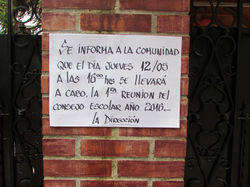 SE INFORMA A LA COMUNIDAD
QUE EL DÍA JUEVES 12/05
A LAS 16:00 hrs SE LLEVARÁ
A CABO, LA 1ra REUNION DEL
CONSEJO ESCOLAR AÑO 2016...
LA DIRECCIÓN